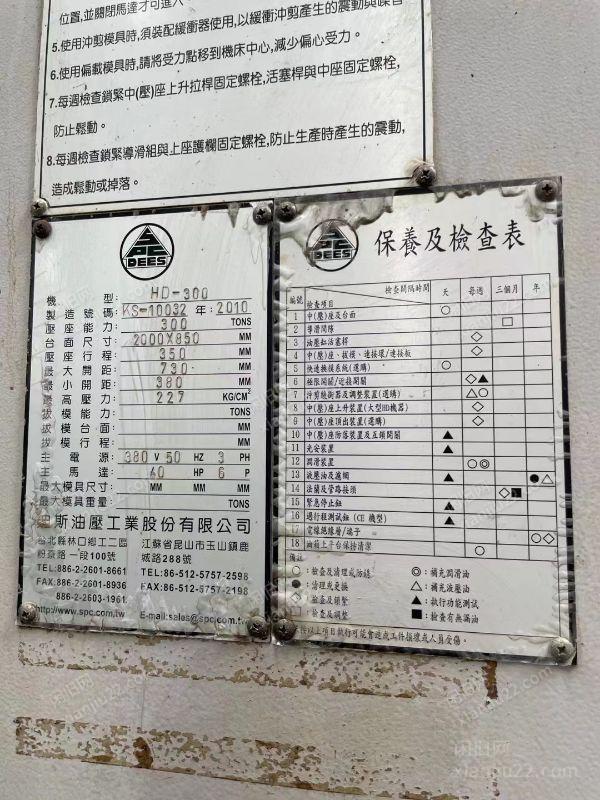 位置,並關閉馬達才可進入
5.使用沖剪模具時,須裝配緩衝器使用,以緩衝沖剪產生的震動與噪音
6.使用偏載模具時,請將受力點移到機床中心,減少偏心受力。
7.每週檢查鎖緊中(壓)座上升拉桿固定螺栓,活塞桿與中座固定螺栓,
防止鬆動。
8.每週檢查鎖緊導滑組與上座護欄固定螺栓,防止生產時產生的震動,
造成鬆動或掉落。
DEES
機型: HD-300
製造號碼: KS-10032 年: 2010
壓座能力: 300 TONS
台面尺寸: 2000X850 MM
壓座行程: 350 MM
最大開距: 730 MM
最小開距: 380 MM
最高壓力: 227 KG/CM²
拔模能力: TONS
拔模台面: MM
拔模行程: MM
主電源: 380 V 50 HZ 3 PH
主馬達: 40 HP 6 P
最大模具尺寸: MM MM MM
最大模具重量: TONS
迪斯油壓工業股份有限公司
台北縣林口鄉工二區
粉寮路一段100號
TEL:886-2-2601-8661
FAX:886-2-2601-8936
886-2-2603-1961
http://www.spc.com.tw
江蘇省昆山市玉山鎮鹿
城路288號
TEL:86-512-5757-2598
FAX:86-512-5757-2198
E-mail:sales@spc.com.tw
DEES
保養及檢查表
編號 檢查項目 檢查間隔時間 天 每週 三個月 年
1 中(壓)座及台面 ○
2 導滑間隙 □
3 油壓缸活塞桿 ◇
4 中(壓)座、拔模、連接環/連接板 ◇
5 快速換模系統(選購) ○
6 極限開關/近接開關 ◇▲
7 沖剪緩衝器及調整裝置(選購) △○
8 中(壓)座上升裝置(大型HD機器) ◇
9 中(壓)座頂出裝置(選購) ◇
10 中(壓)座防落裝置及互鎖開關 ▲
11 光安裝置 ▲
12 潤滑裝置 ○◎
13 液壓油及濾網 ▲ ●△
14 法蘭及管路接頭 ◇■
15 緊急停止鈕 ▲
16 過行程測試鈕 (CE 機型) ▲
17 電線絕緣層/端子 ◇
18 油箱上平台保持清潔 ○
備註
○:檢查及清理或防銹 ◎:補充潤滑油
●:清理或更換 △:補充液壓油
◇:檢查及鎖緊 ▲:執行功能測試
□:檢查及調整 ■:檢查有無漏油
以上項目執行可能會造成工件損壞或人員受傷。
闲旧网
xianjiu22.com